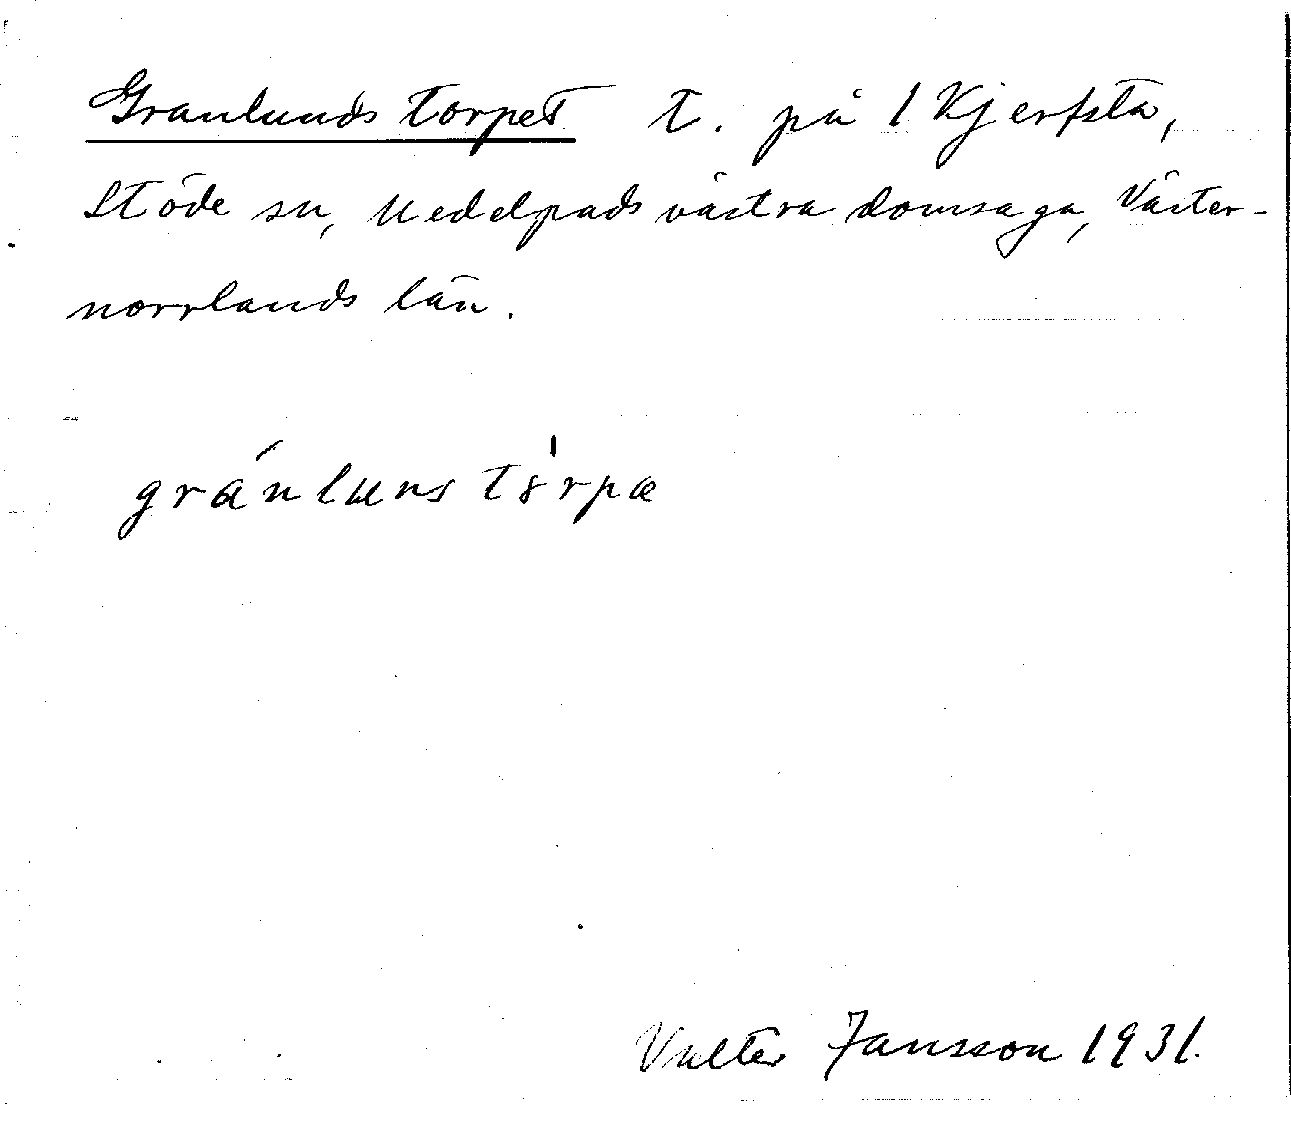 Granlundstorpet t. på 1 Kjerfsta,
Stöde sn, Medelpads västra domsaga, Väster-
norrlands län.
gránlunstòrpæ
Valter Jansson 1931.